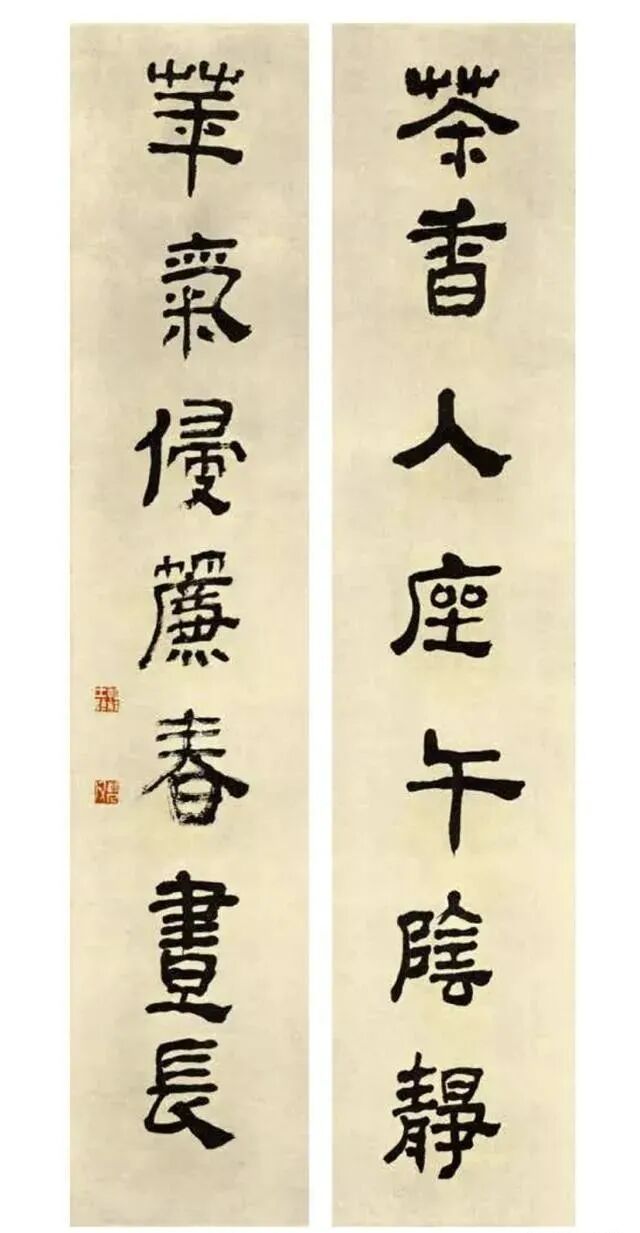 茶香入座午陰靜
華氣侵簾春晝長